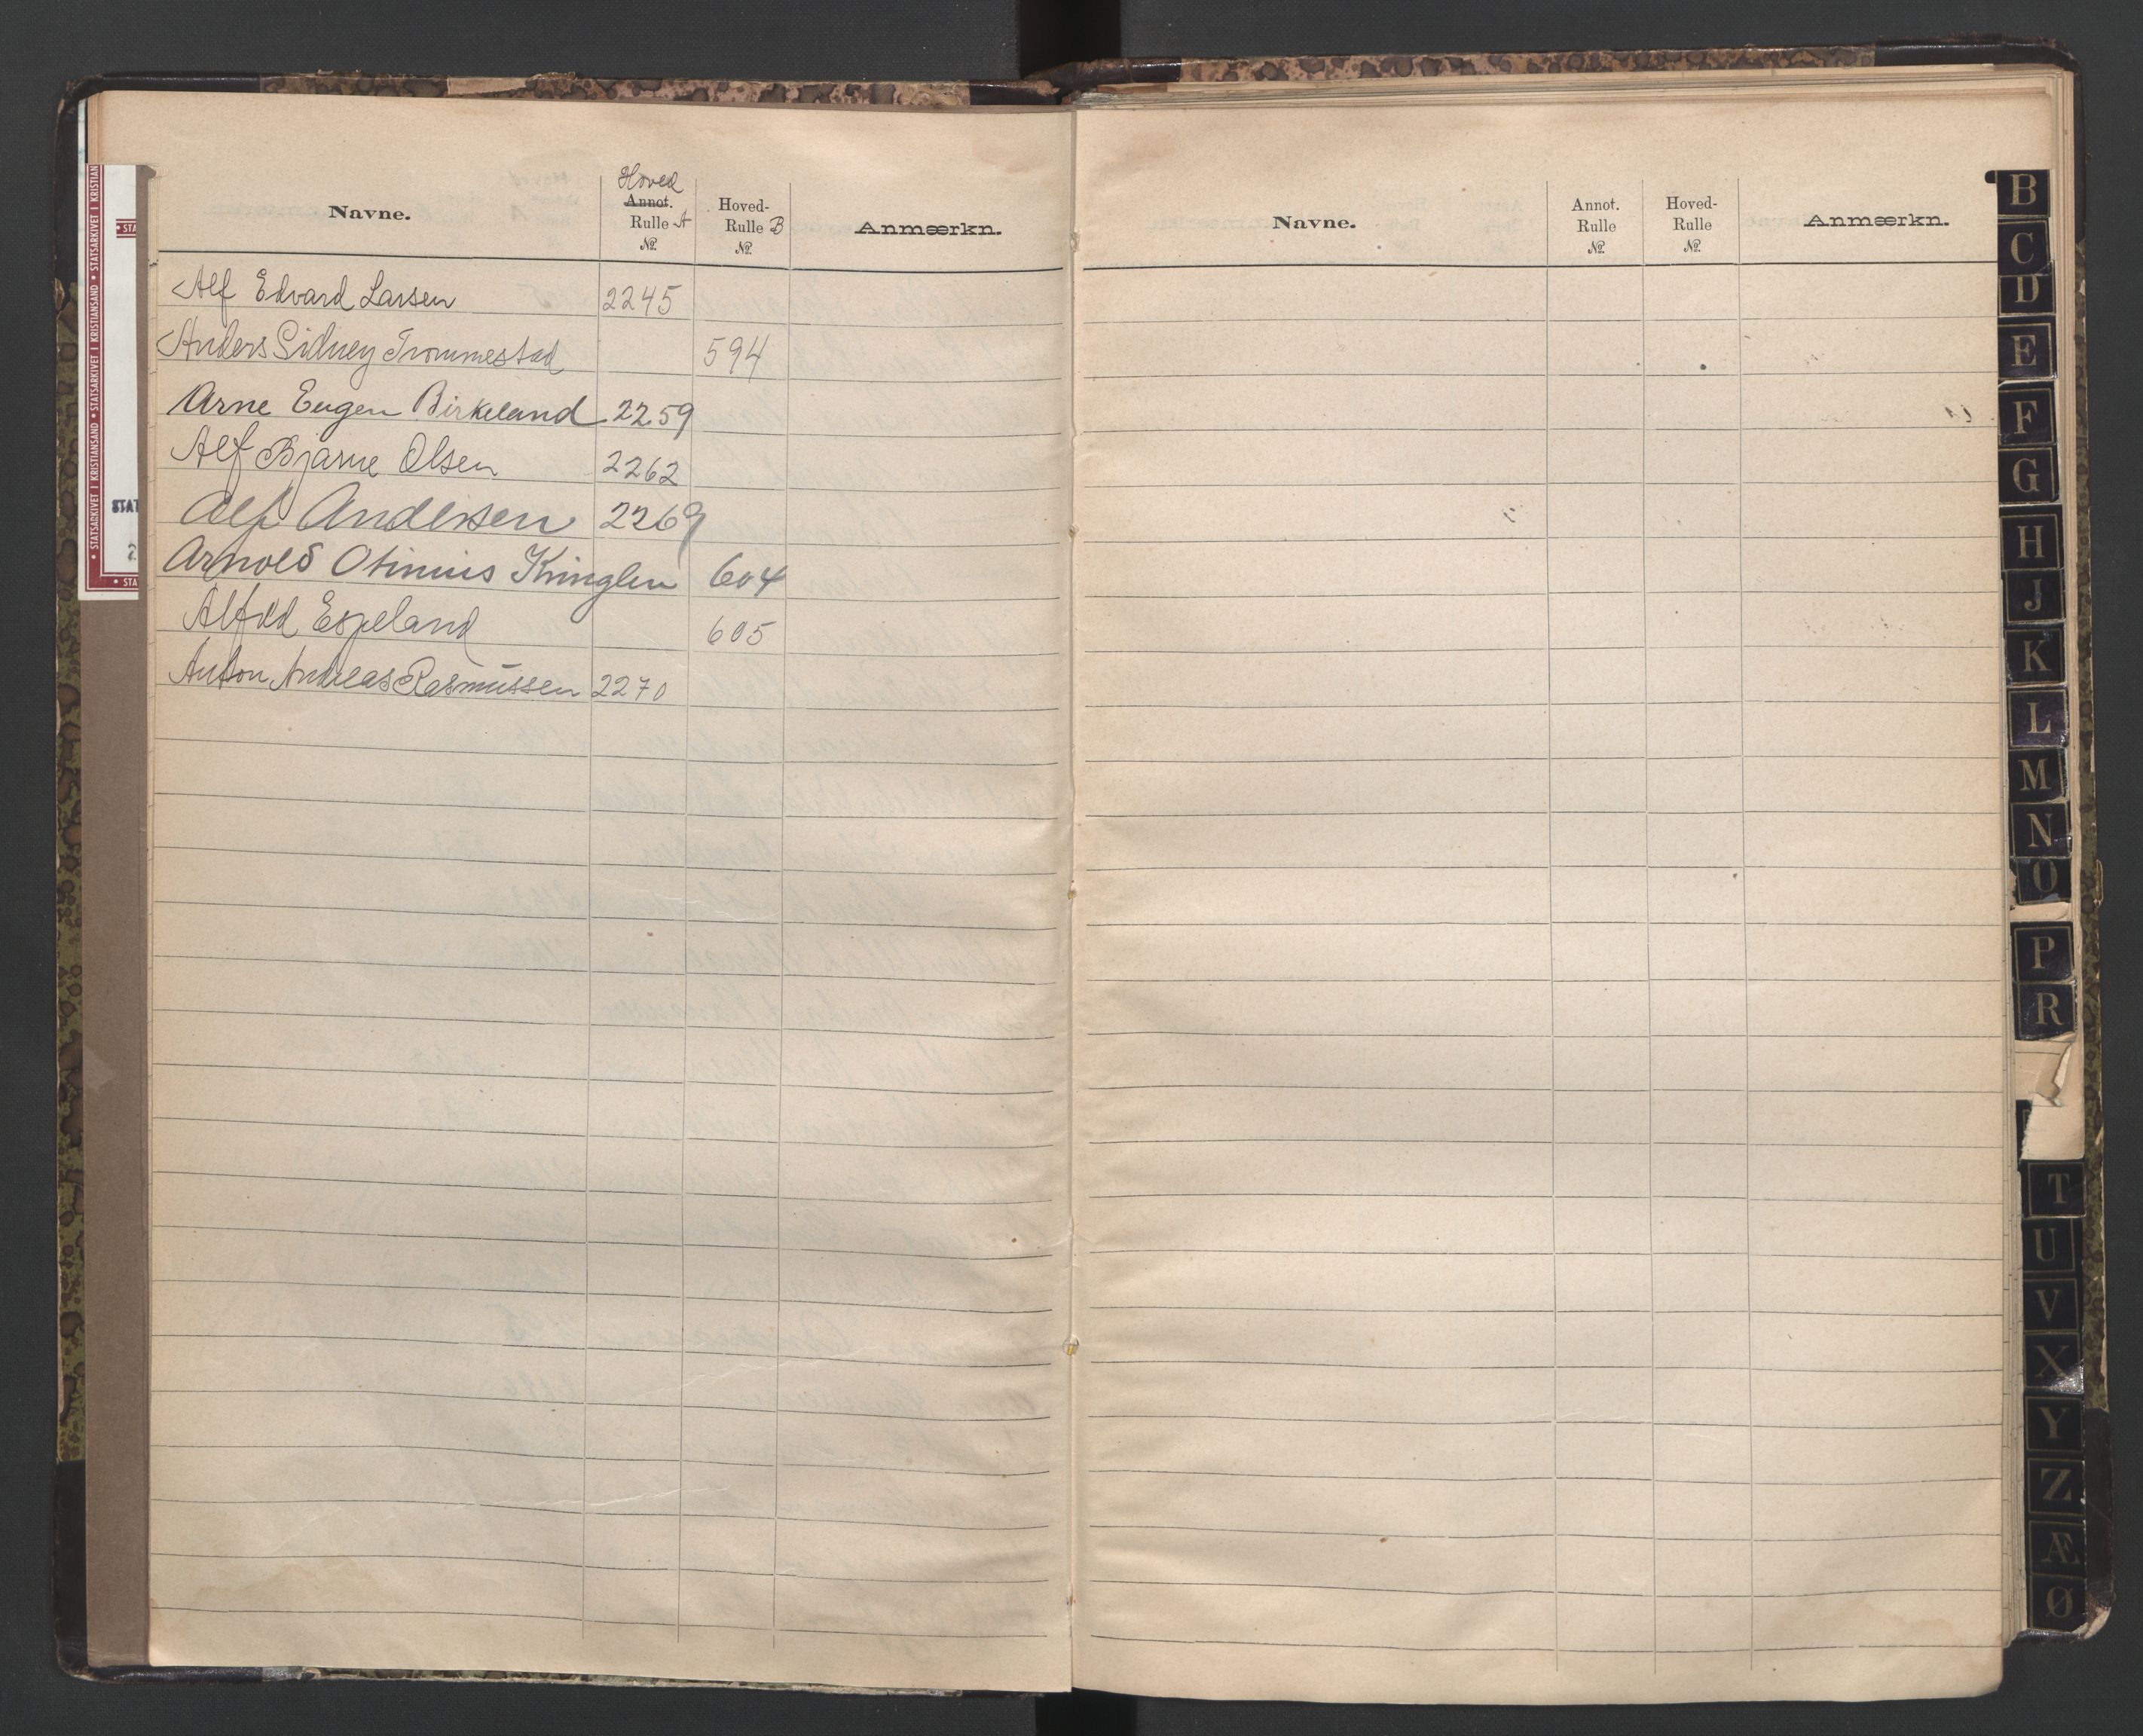 Hoved
Navne. Annot. Rulle A № Hoved-Rulle B № Anmærkn.
Alf Edvard Larsen 2245
Anders Sidney Trommestad 594
Arne Eugen Birkeland 2259
Alf Bjarne Olsen 2262
Alf Andersen 2269
Arnold Otinius Kringlen 604
Alfred Espeland 605
Anton Andreas Rasmussen 2270
Navne. Annot. Rulle № Hoved-Rulle № Anmærkn.
B
C
D
E
F
G
H
J
K
L
M
N
O
P
R
T
U
V
X
Y
Z
Æ
Ø
STATSARKIVET I KRISTIANSAND • STATSARKIVET I KRISTIANSAND • STATSARKIVET I KRISTIAN